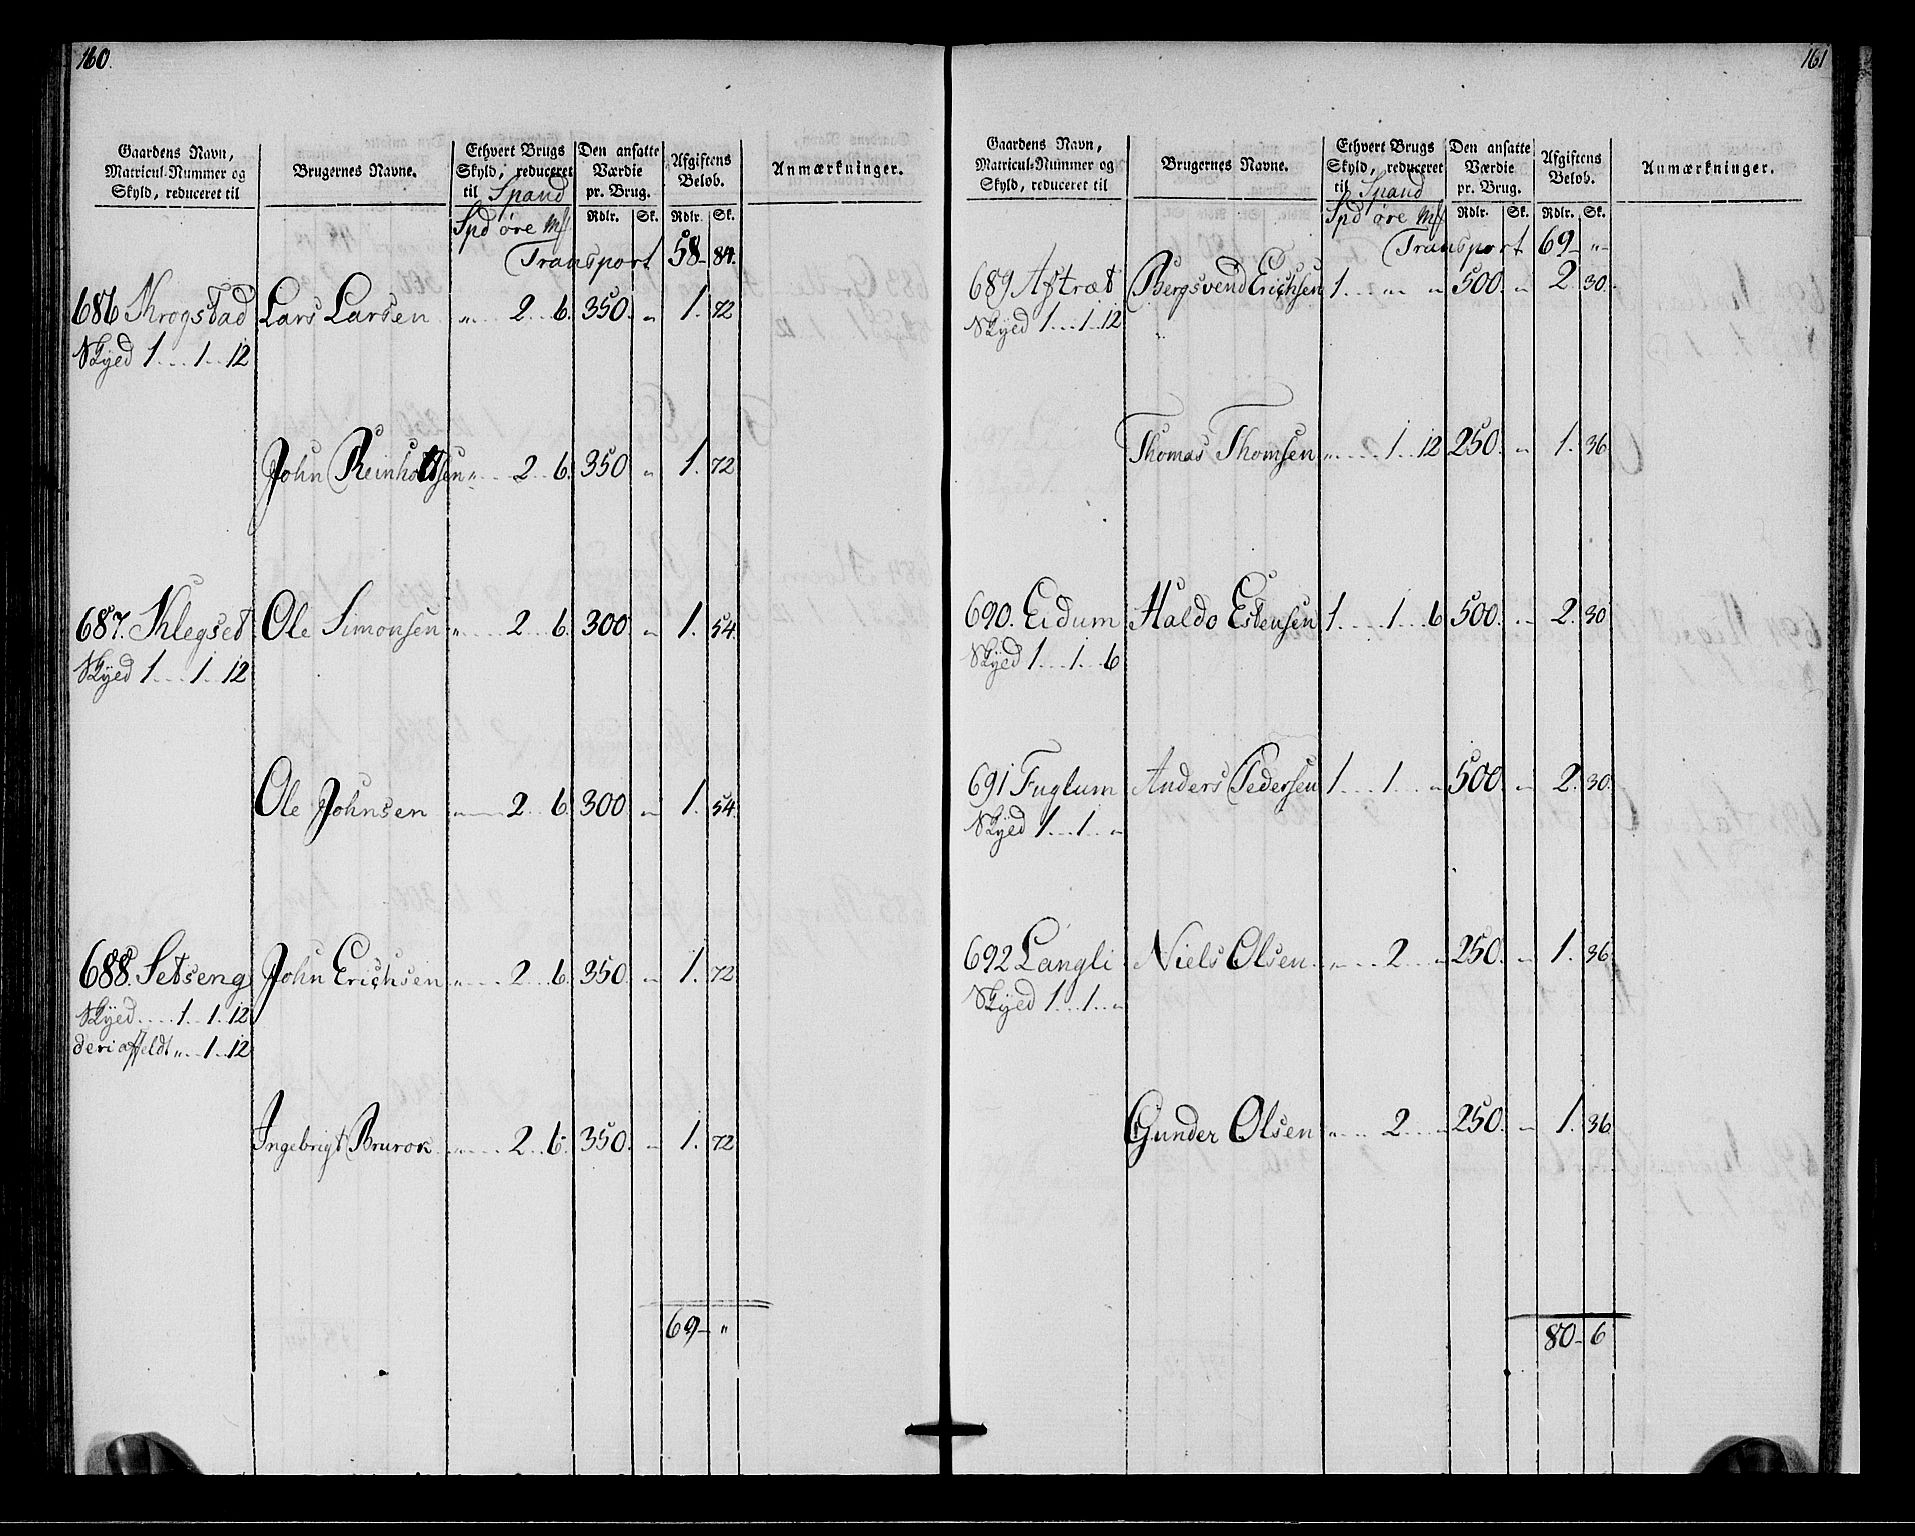 160.
Gaardens Navn, Matricul-Nummer og Skyld, reduceret til
Brugernes Navne.
Ethvert Brugs Skyld, reduceret til Spand
Den ansatte Værdie pr. Brug.
Afgiftens Beløb.
Anmærkninger.
Spd øre Mk
Rdlr. Sk. Rdlr. Sk.
Transport 58 - 84.
686 Krogstad Lars Larsen „ 2 6. 350. „ 1. 72
Skyed 1 1 12
John Reinholtsen „ 2 6. 350 „ 1. 72
687. Klegset Ole Simonsen „ 2 6. 300 „ 1. 54.
Skyed 1 1 12
Ole Johnsen „ 2 6. 300 „ 1. 54.
688. Setseng John Erichsen „ 2 6. 350. „ 1. 72
Skyed 1 1 12
deri øffeldt „ 1 12
Ingebrigt Brurok „ 2 6. 350. „ 1. 72
69 - „
161
Gaardens Navn, Matricul-Nummer og Skyld, reduceret til
Brugernes Navne.
Ethvert Brugs Skyld, reduceret til Spand
Den ansatte Værdie pr. Brug.
Afgiftens Beløb.
Anmærkninger.
Spd øre Mk
Rdlr. Sk. Rdlr. Sk.
Transport 69 - „ -
689 Aftræt Bergsvend Erichsen 1 „ „ 500. „ 2. 30.
Skyed 1 1 12 „
Thomas Thomsen „ 1 12 250. „ 1. 36.
690. Eidum Haldo Estensen 1 1 6 500. „ 2. 30
Skyed 1 1 6
691 Fuglum Anders Pedersen 1 1 „ 500. „ 2. 30.
Skyed 1 1 „
692 Langli Niels Olsen „ 2 „ 250. „ 1. 36.
Skyed 1 1 „
Gunder Olsen „ 2 „ 250. „ 1. 36.
80 - 6